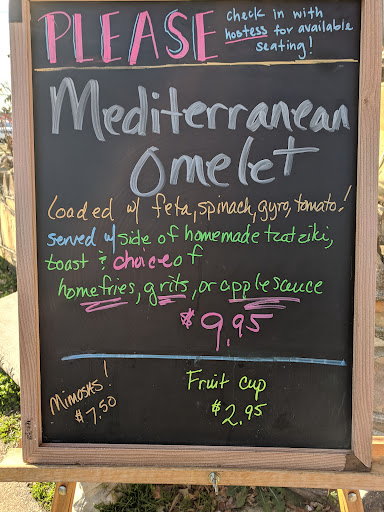 PLEASE
check in with
hostess for available
seating!
Mediterranean
Omelet
loaded w/ feta, spinach, gyro, tomato!
served w/ side of homemade tzatziki,
toast & choice of
homefries, grits, or applesauce
$9.95
Mimosas!
$7.50
Fruit cup
$2.95